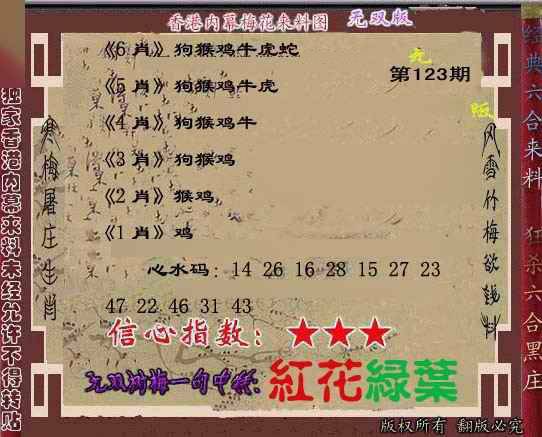 香港内幕梅花来料图 无双版
《6 肖》狗猴鸡牛虎蛇
第123期
《5 肖》狗猴鸡牛虎
《4 肖》狗猴鸡牛
《3 肖》狗猴鸡
《2 肖》猴鸡
《1 肖》鸡
心水码：14 26 16 28 15 27 23
47 22 46 31 43
信心指数：★★★
无双湖梅一句中特:紅花綠葉
版权所有 翻版必究
独家香港内幕来料未经允许不得转贴
寒梅屠庄生肖
无
版
风雪竹梅欲钱料
经典六合来料
狂杀六合黑庄